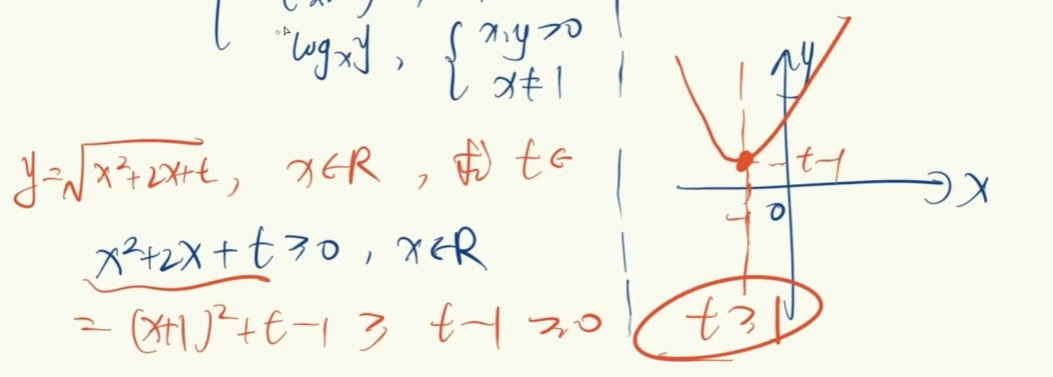 log_x y , { x,y>0
x≠1
y=√x²+2x+t, x∈R , 求 t∈
x²+2x+t≥0 , x∈R
= (x+1)²+t-1 ≥ t-1 ≥0
y
t-1
x
0
-1
t≥1